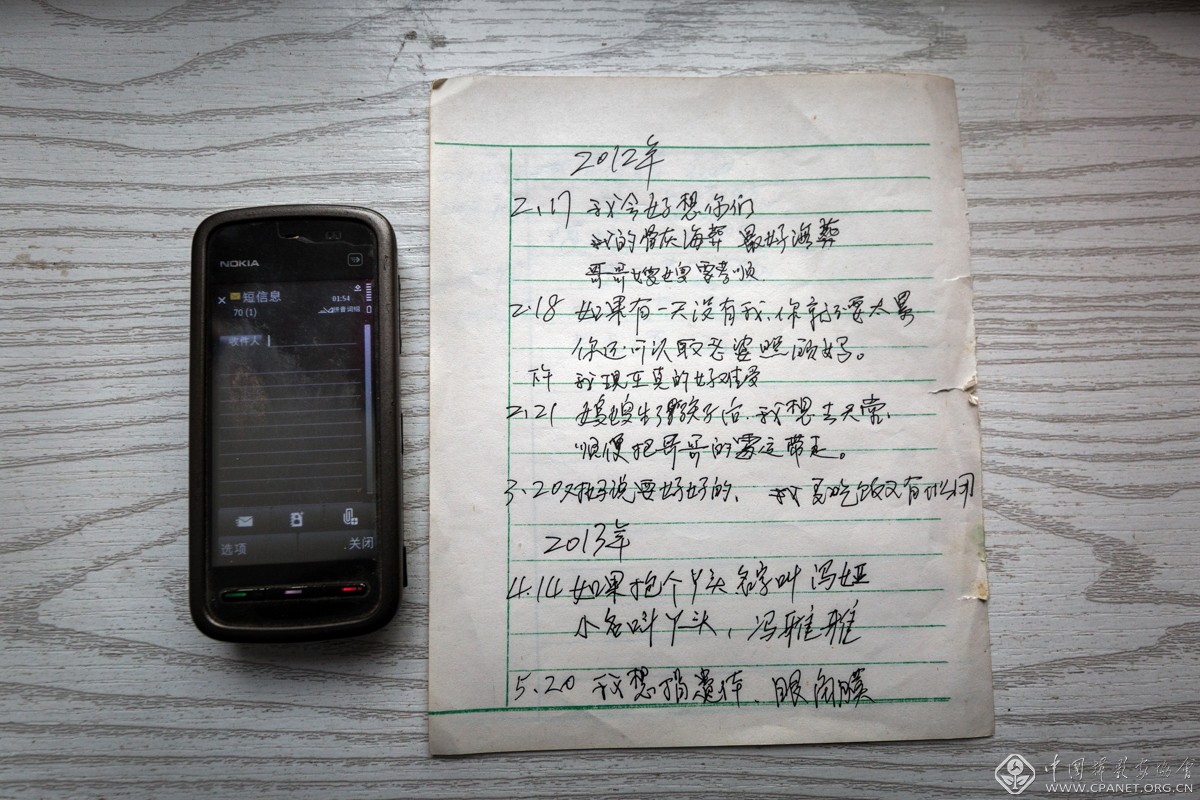 NOKIA
短信息
01:54
70 (1)
拼音词组
收件人
选项
关闭
2012年
2.17 我会好想你们
我的骨灰海葬 最好海葬
哥哥嫂嫂要孝顺
2.18 如果有一天没有我、你就不要太累
你还可以取老婆照顾好。
下午 我现在真的好难受
2.21 妈妈生了猴子后、我想去天堂、
顺便把哥哥的霉运带走。
3.20 说要好好的、 我吃饭又有
2013年
4.14 如果抱个丫头名字叫冯娅
小名叫丫头, 冯雅雅
5.20 我想捐遗体、眼角膜
中国摄影家协会
WWW.CPANET.ORG.CN